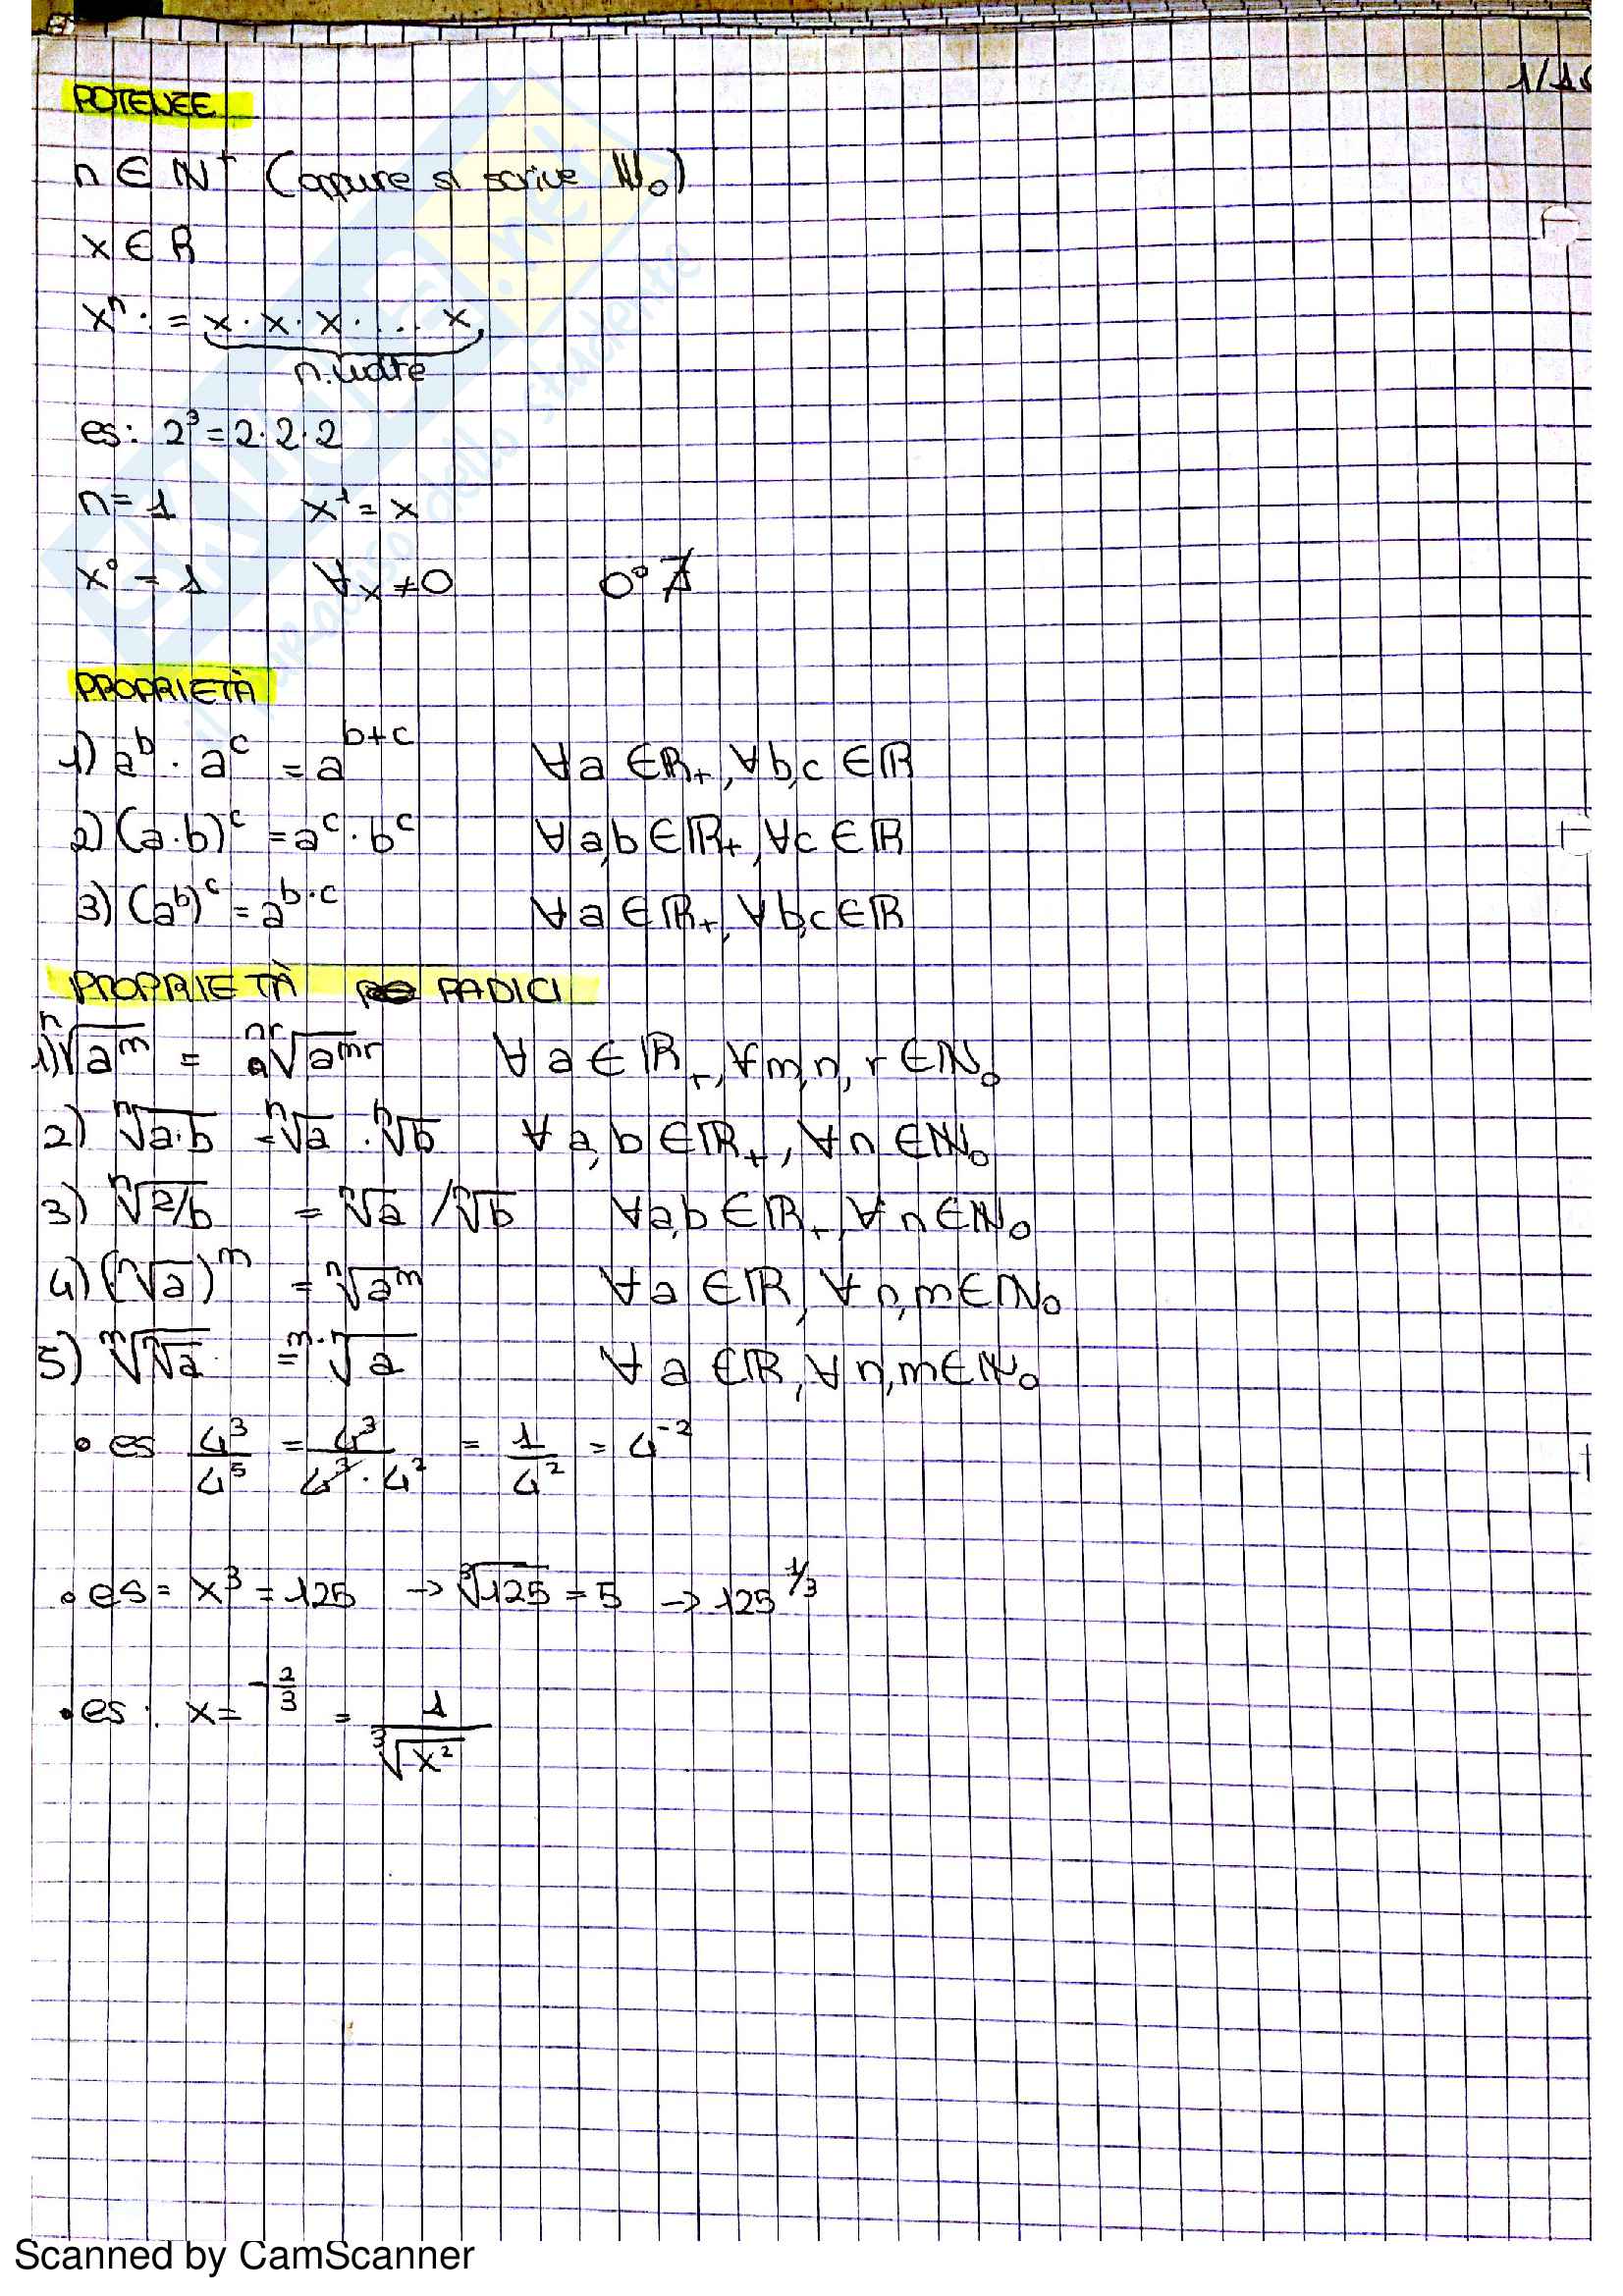 1/10
POTENZE
n ∈ N⁺ (oppure si scrive ℕ₀)
x ∈ R
xⁿ := x · x · x · ... x
n. volte
es: 2³ = 2·2·2
n = 1 x¹ = x
x⁰ = 1 ∀x ≠ 0 0⁰ ∄
PROPRIETÀ
1) a^b · a^c = a^(b+c) ∀a ∈ ℝ₊, ∀b,c ∈ ℝ
2) (a·b)^c = a^c · b^c ∀a,b ∈ ℝ₊, ∀c ∈ ℝ
3) (a^b)^c = a^(b·c) ∀a ∈ ℝ₊, ∀b,c ∈ ℝ
PROPRIETÀ RADICI
1) ⁿ√(a^m) = ⁿʳ√(a^(mr)) ∀a ∈ ℝ₊, ∀m,n,r ∈ ℕ₀
2) ⁿ√(a·b) = ⁿ√a · ⁿ√b ∀a,b ∈ ℝ₊, ∀n ∈ ℕ₀
3) ⁿ√(a/b) = ⁿ√a / ⁿ√b ∀a,b ∈ ℝ₊, ∀n ∈ ℕ₀
4) (ⁿ√a)^m = ⁿ√(a^m) ∀a ∈ ℝ, ∀n,m ∈ ℕ₀
5) ᵐ√(ⁿ√a) = ᵐ·ⁿ√a ∀a ∈ ℝ, ∀n,m ∈ ℕ₀
• es 4³/4⁵ = 4³/(4³·4²) = 1/4² = 4⁻²
• es = x³ = 125 → ³√125 = 5 → 125^(1/3)
• es: x = ^(-2/3) = 1/³√(x²)
Scanned by CamScanner